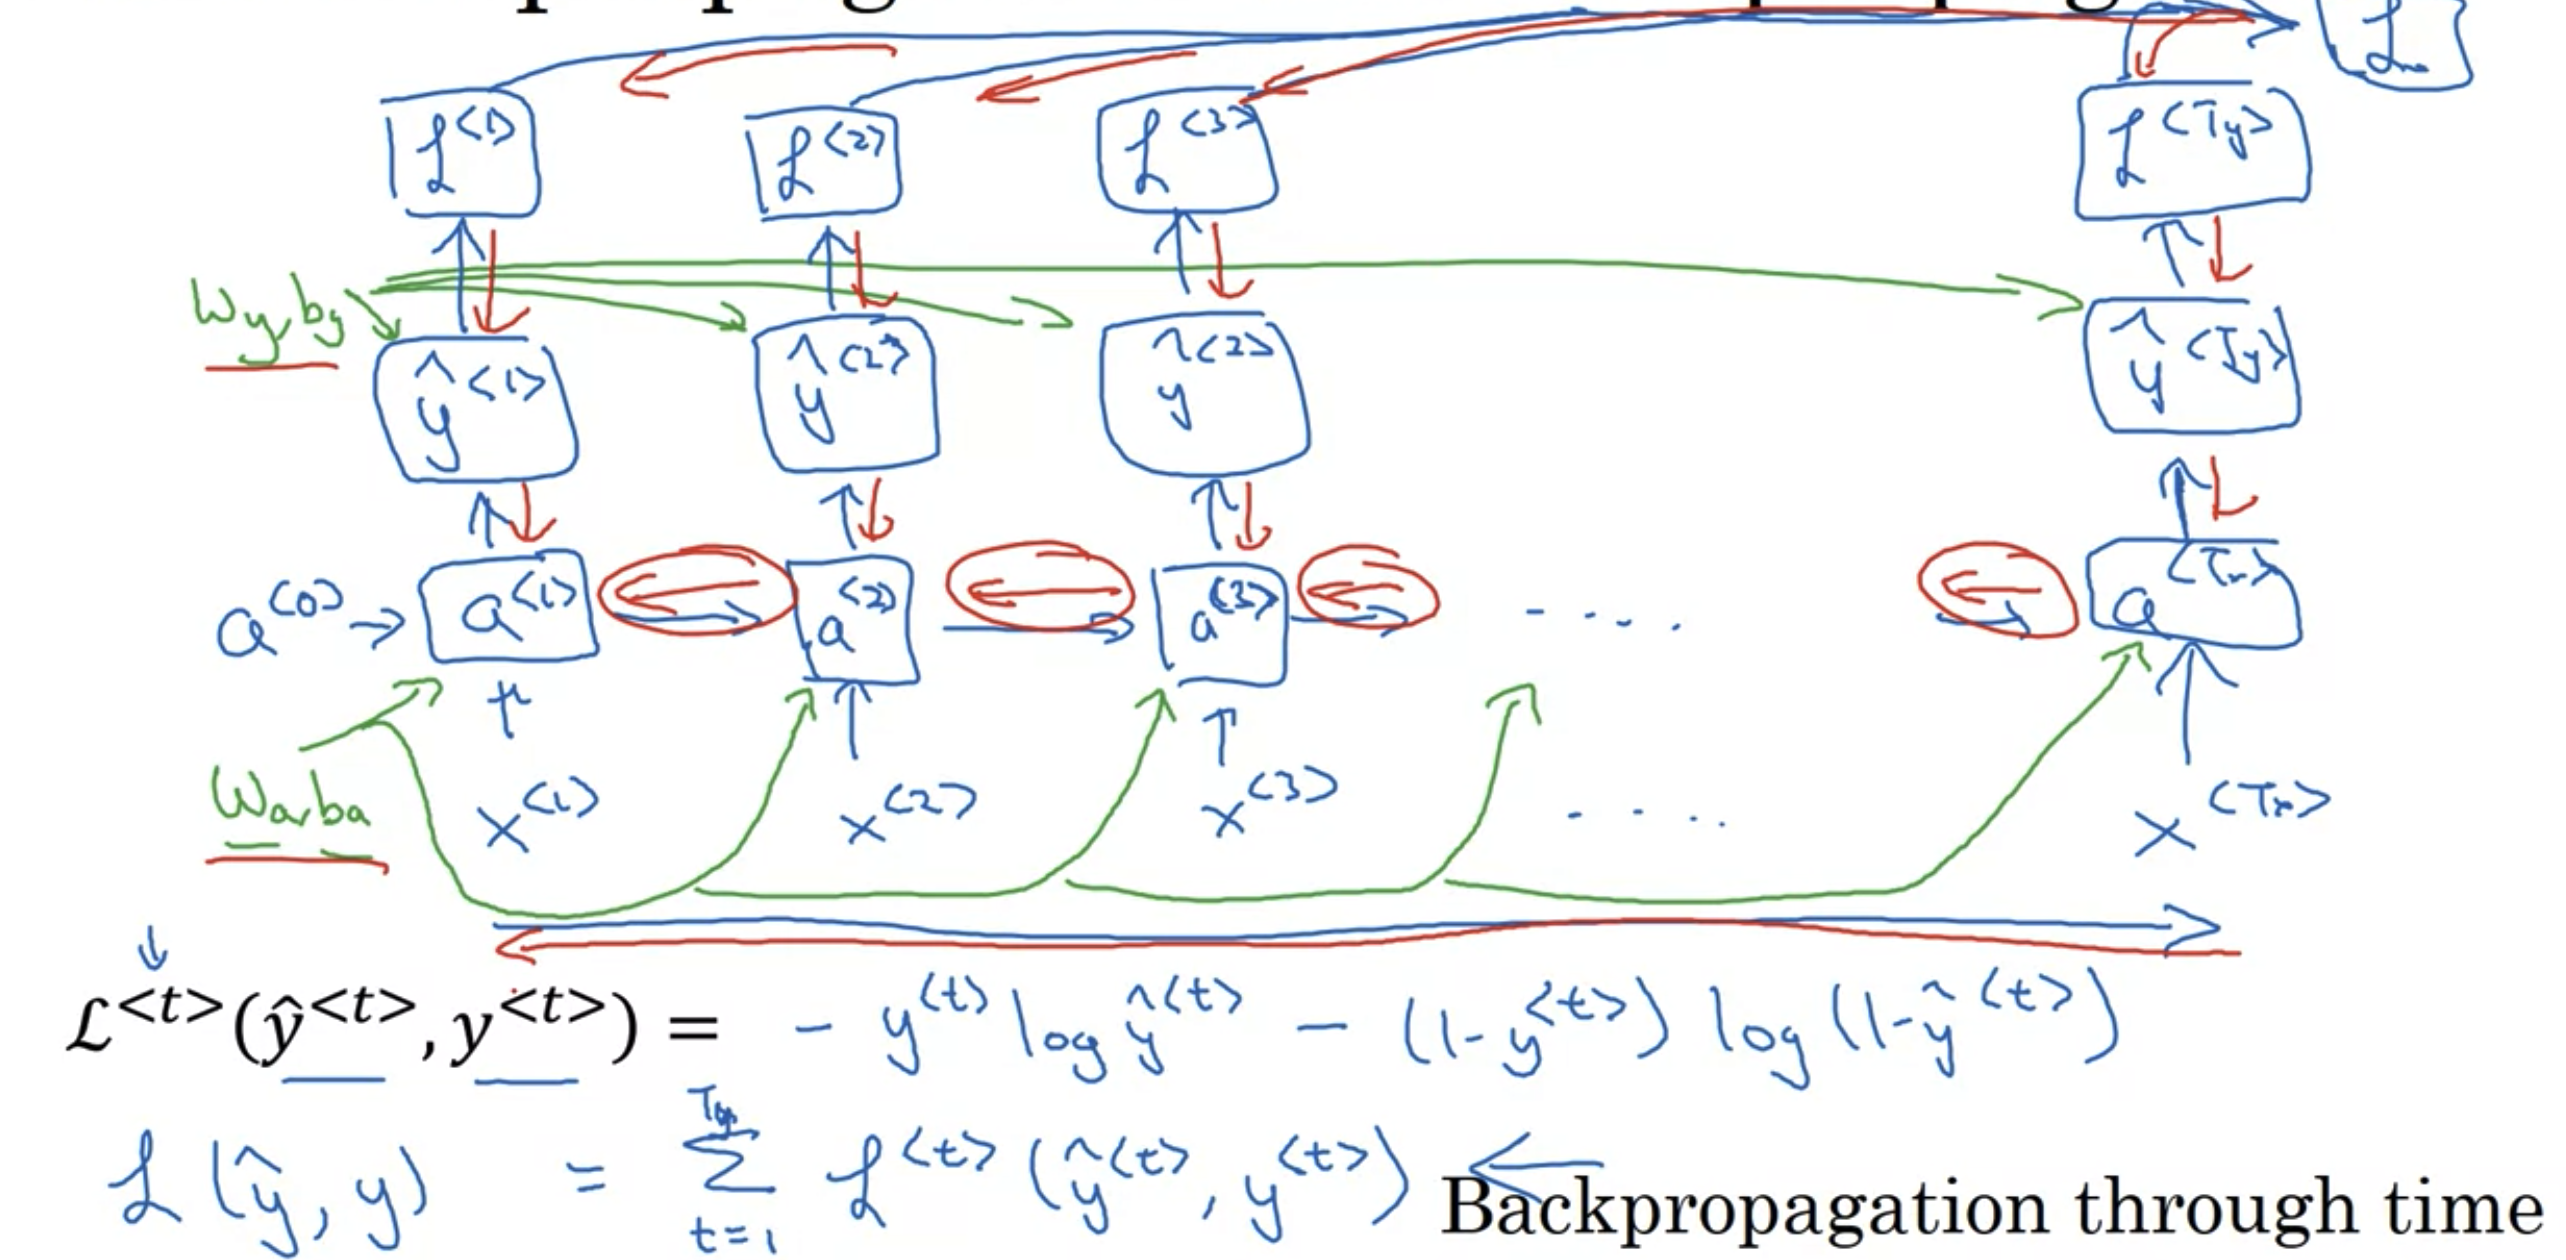 ℒ
ℒ<1> ℒ<2> ℒ<3> ℒ<Ty>
Wy, by
ŷ<1> ŷ<2> ŷ<2> ŷ<Ty>
a<0> → a<1> a<2> a<3> - . . . a<Tx>
Wa, ba
x<1> x<2> x<3> . . . . x<Tx>
ℒ<t>(ŷ<t>, y<t>) = - y<t> log ŷ<t> - (1-y<t>) log (1-ŷ<t>)
ℒ(ŷ, y) = Σ t=1 Ty ℒ<t>(ŷ<t>, y<t>) ←
Backpropagation through time